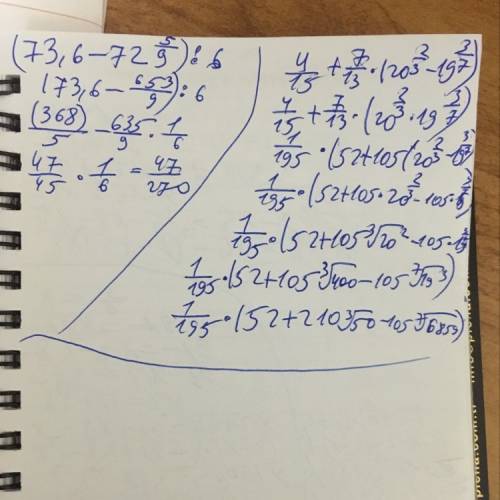 (73,6 − 72 5/9) : 6
(73,6 − 653/9) : 6
(368)/5 − 635/9 · 1/6
47/45 · 1/6 = 47/270
4/15 + 7/13 · (20^2/3 − 19^3/7)
4/15 + 7/13 · (20^2/3 · 19^3/7)
1/195 · (52+105(20^2/3 − 19^3/7)
1/195 · (52+105 · 20^2/3 − 105 ·
1/195 · (52+105∛20² − 105 ·
1/195 · (52+105∛400 − 105 ⁷√19³)
1/195 · (52+210∛50 − 105 ⁷√6859)